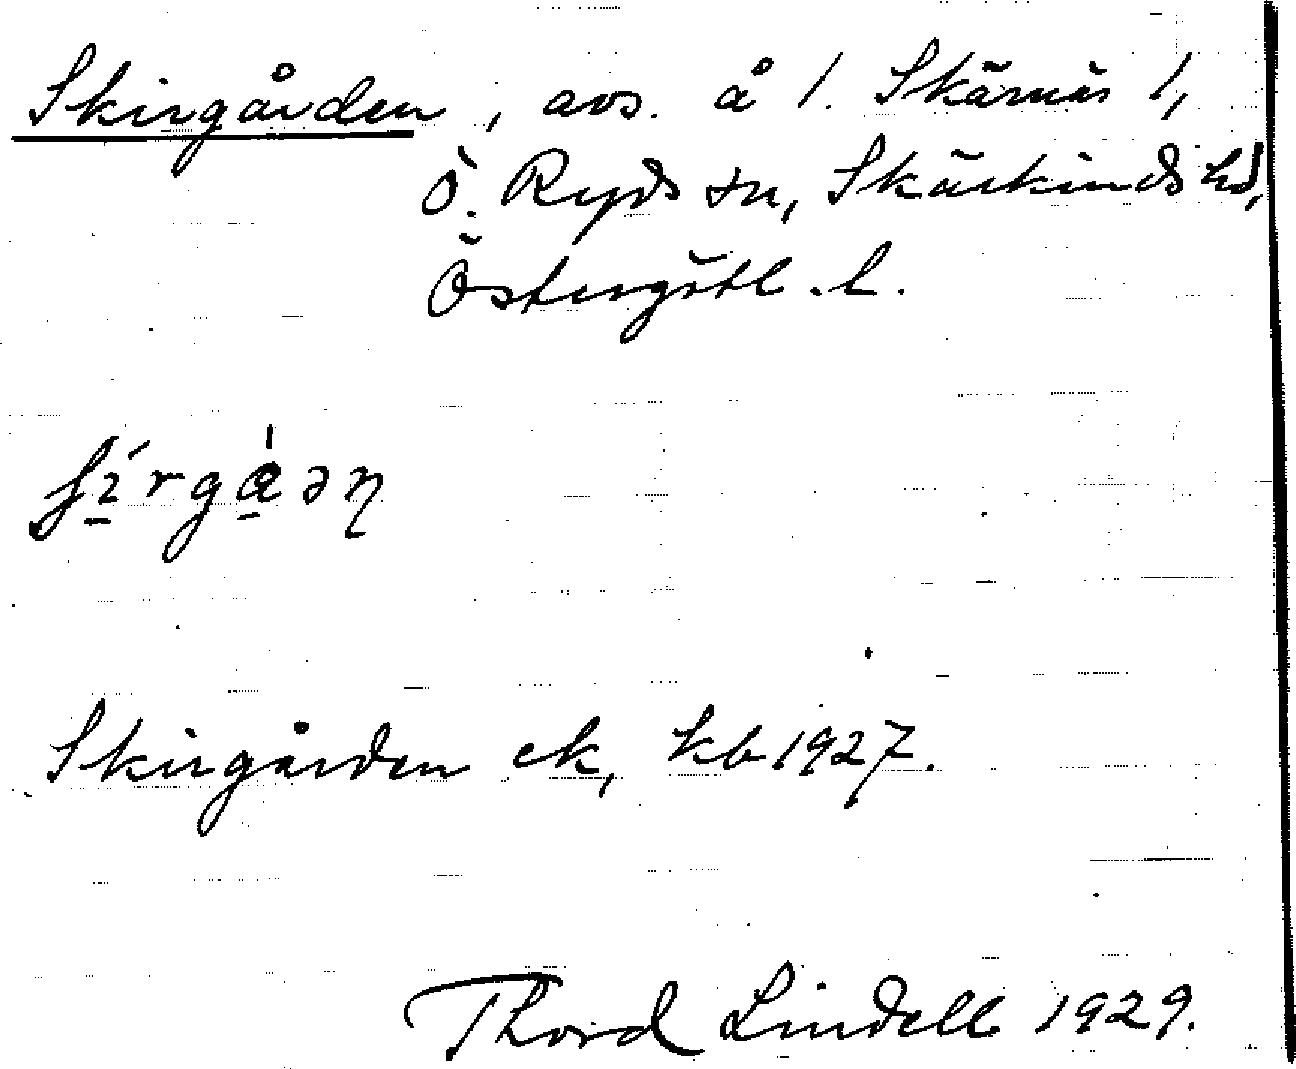 Skirgården, avs. å 1. Skärnäs 1,
Ö. Ryds sn, Skärkinds hd,
Östergötl. l.
ʃí̠rgὰ̠əɳ
Skirgården ek, kb 1927.
Thord Lindell 1929.